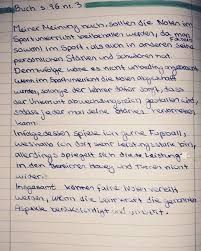 Buch S. 96 nr. 3
Meiner Meinung nach, sollten die Noten im
Sportunterricht beibehalten werden, da man
sowohl im Sport, als auch in anderen seine
persönlichen Stärken und Schwächen hat.
Demzufolge wäre es nicht unbedingt
wenn im Sportunterricht die Noten abgeschafft
werden, solange der Lehrer dafür sorgt, dass
der Unterricht abwechslungsreich gestaltet wird,
sodass jeder mal seine Stärken
kann.
Infolgedessen spiele ich gerne Fussball,
weshalb ich dort sehr leistungsstark bin,
allerdings spiegelt sich die Leistung
in den Bereichen und Turnen nicht
wider.
Insgesamt können faire Noten verteilt
werden, wenn die Lehrkraft die genannten
Aspekte berücksichtigt und